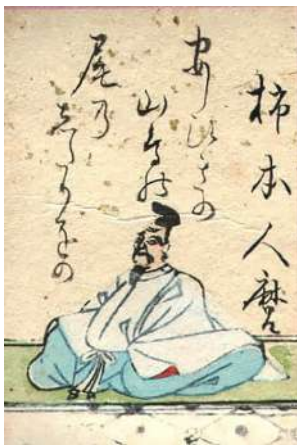 柿本人麿
あしひきの
山鳥の
尾乃
しだりをの